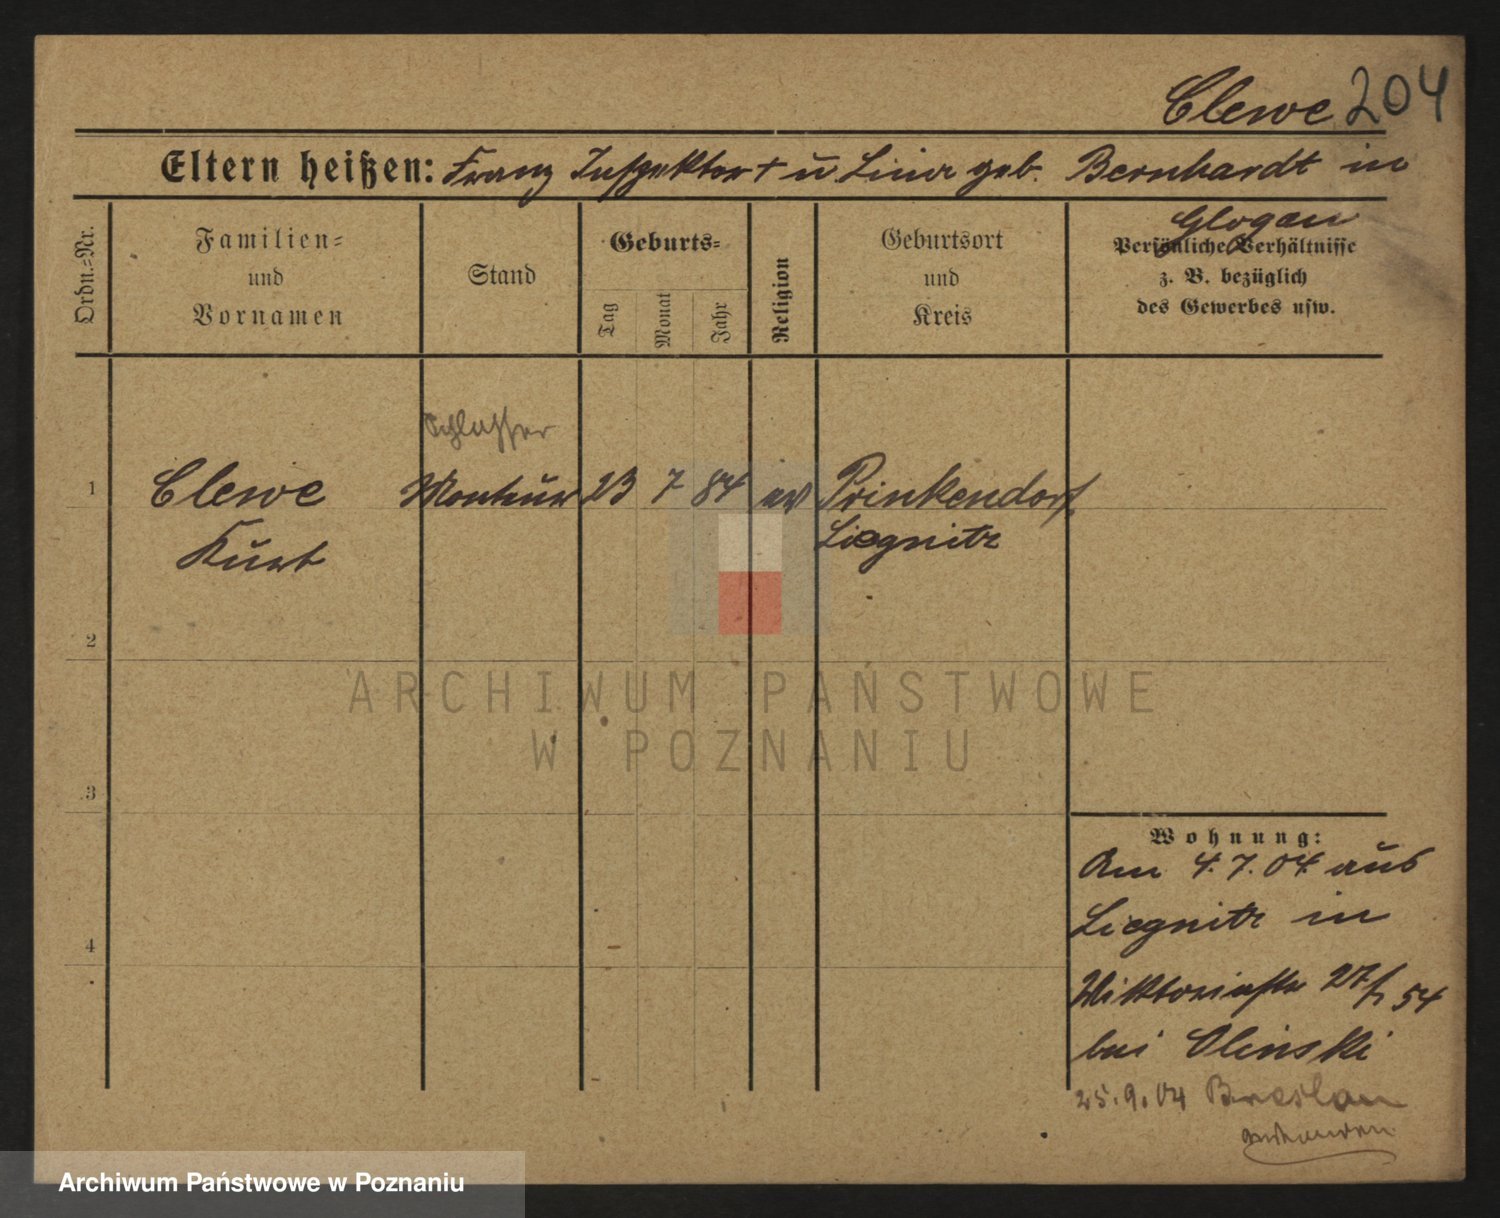 Clewe 204
Eltern heißen: Franz Inspektor † u Line geb. Bernhardt in
Glogau
Ordn.=Nr.
Familien=
und
Vornamen
Stand
Geburts=
Tag
Monat
Jahr
Religion
Geburtsort
und
Kreis
Persönliche Verhältnisse
z. B. bezüglich
des Gewerbes usw.
Schlosser
1 Clewe Monteur 23 7 84 ev Prinkendorf
Kurt Liegnitz
2
3
4
Wohnung:
Am 4.7.04 aus
Liegnitz in
Viktoriastr 27 54
bei Olinski
25.9.04 Breslau
ARCHIWUM PAŃSTWOWE
W POZNANIU
Archiwum Państwowe w Poznaniu